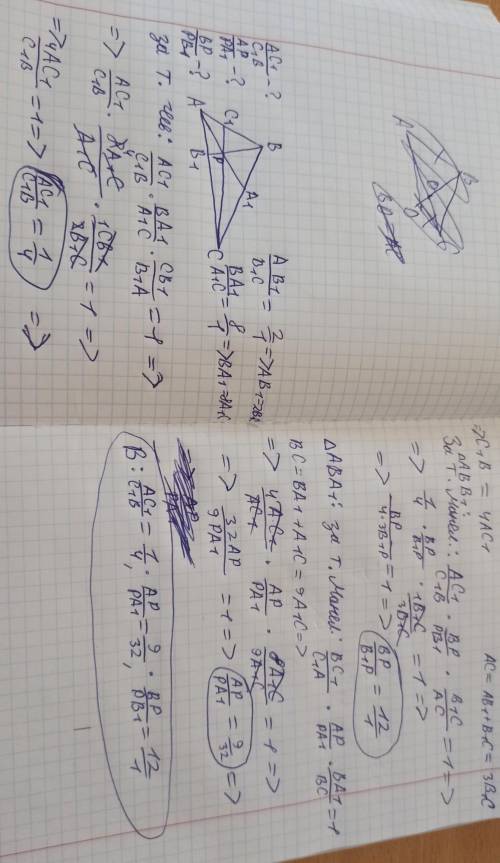 AC1/C1B - ?
AP/PA1 - ?
BP/PB1 - ?
A B C C1 A1 B1 P
AB1/B1C = 2/1 => AB1 = 2B1C
BA1/A1C = 8/1 => BA1 = 8A1C
За т. Чеви: AC1/C1B · BA1/A1C · CB1/B1A = 1 =>
=> AC1/C1B · 8A1C/A1C · 1CB1/2B1C = 1 =>
=> 4AC1/C1B = 1 => AC1/C1B = 1/4 =>
=> C1B = 4AC1
AC = AB1 + B1C = 3B1C
△ABB1:
За т. Манел.: AC1/C1B · BP/PB1 · B1C/AC = 1 =>
=> 1/4 · BP/B1P · 1B1C/3B1C = 1 =>
=> BP/4·3B1P = 1 => BP/B1P = 12/1
△ABA1: за т. Манел: BC1/C1A · AP/PA1 · BA1/BC = 1
BC = BA1 + A1C = 9A1C =>
=> 4AC1/AC1 · AP/PA1 · 8A1C/9A1C = 1 =>
=> 32AP/9PA1 = 1 => AP/PA1 = 9/32 =>
В: AC1/C1B = 1/4, AP/PA1 = 9/32, BP/PB1 = 12/1